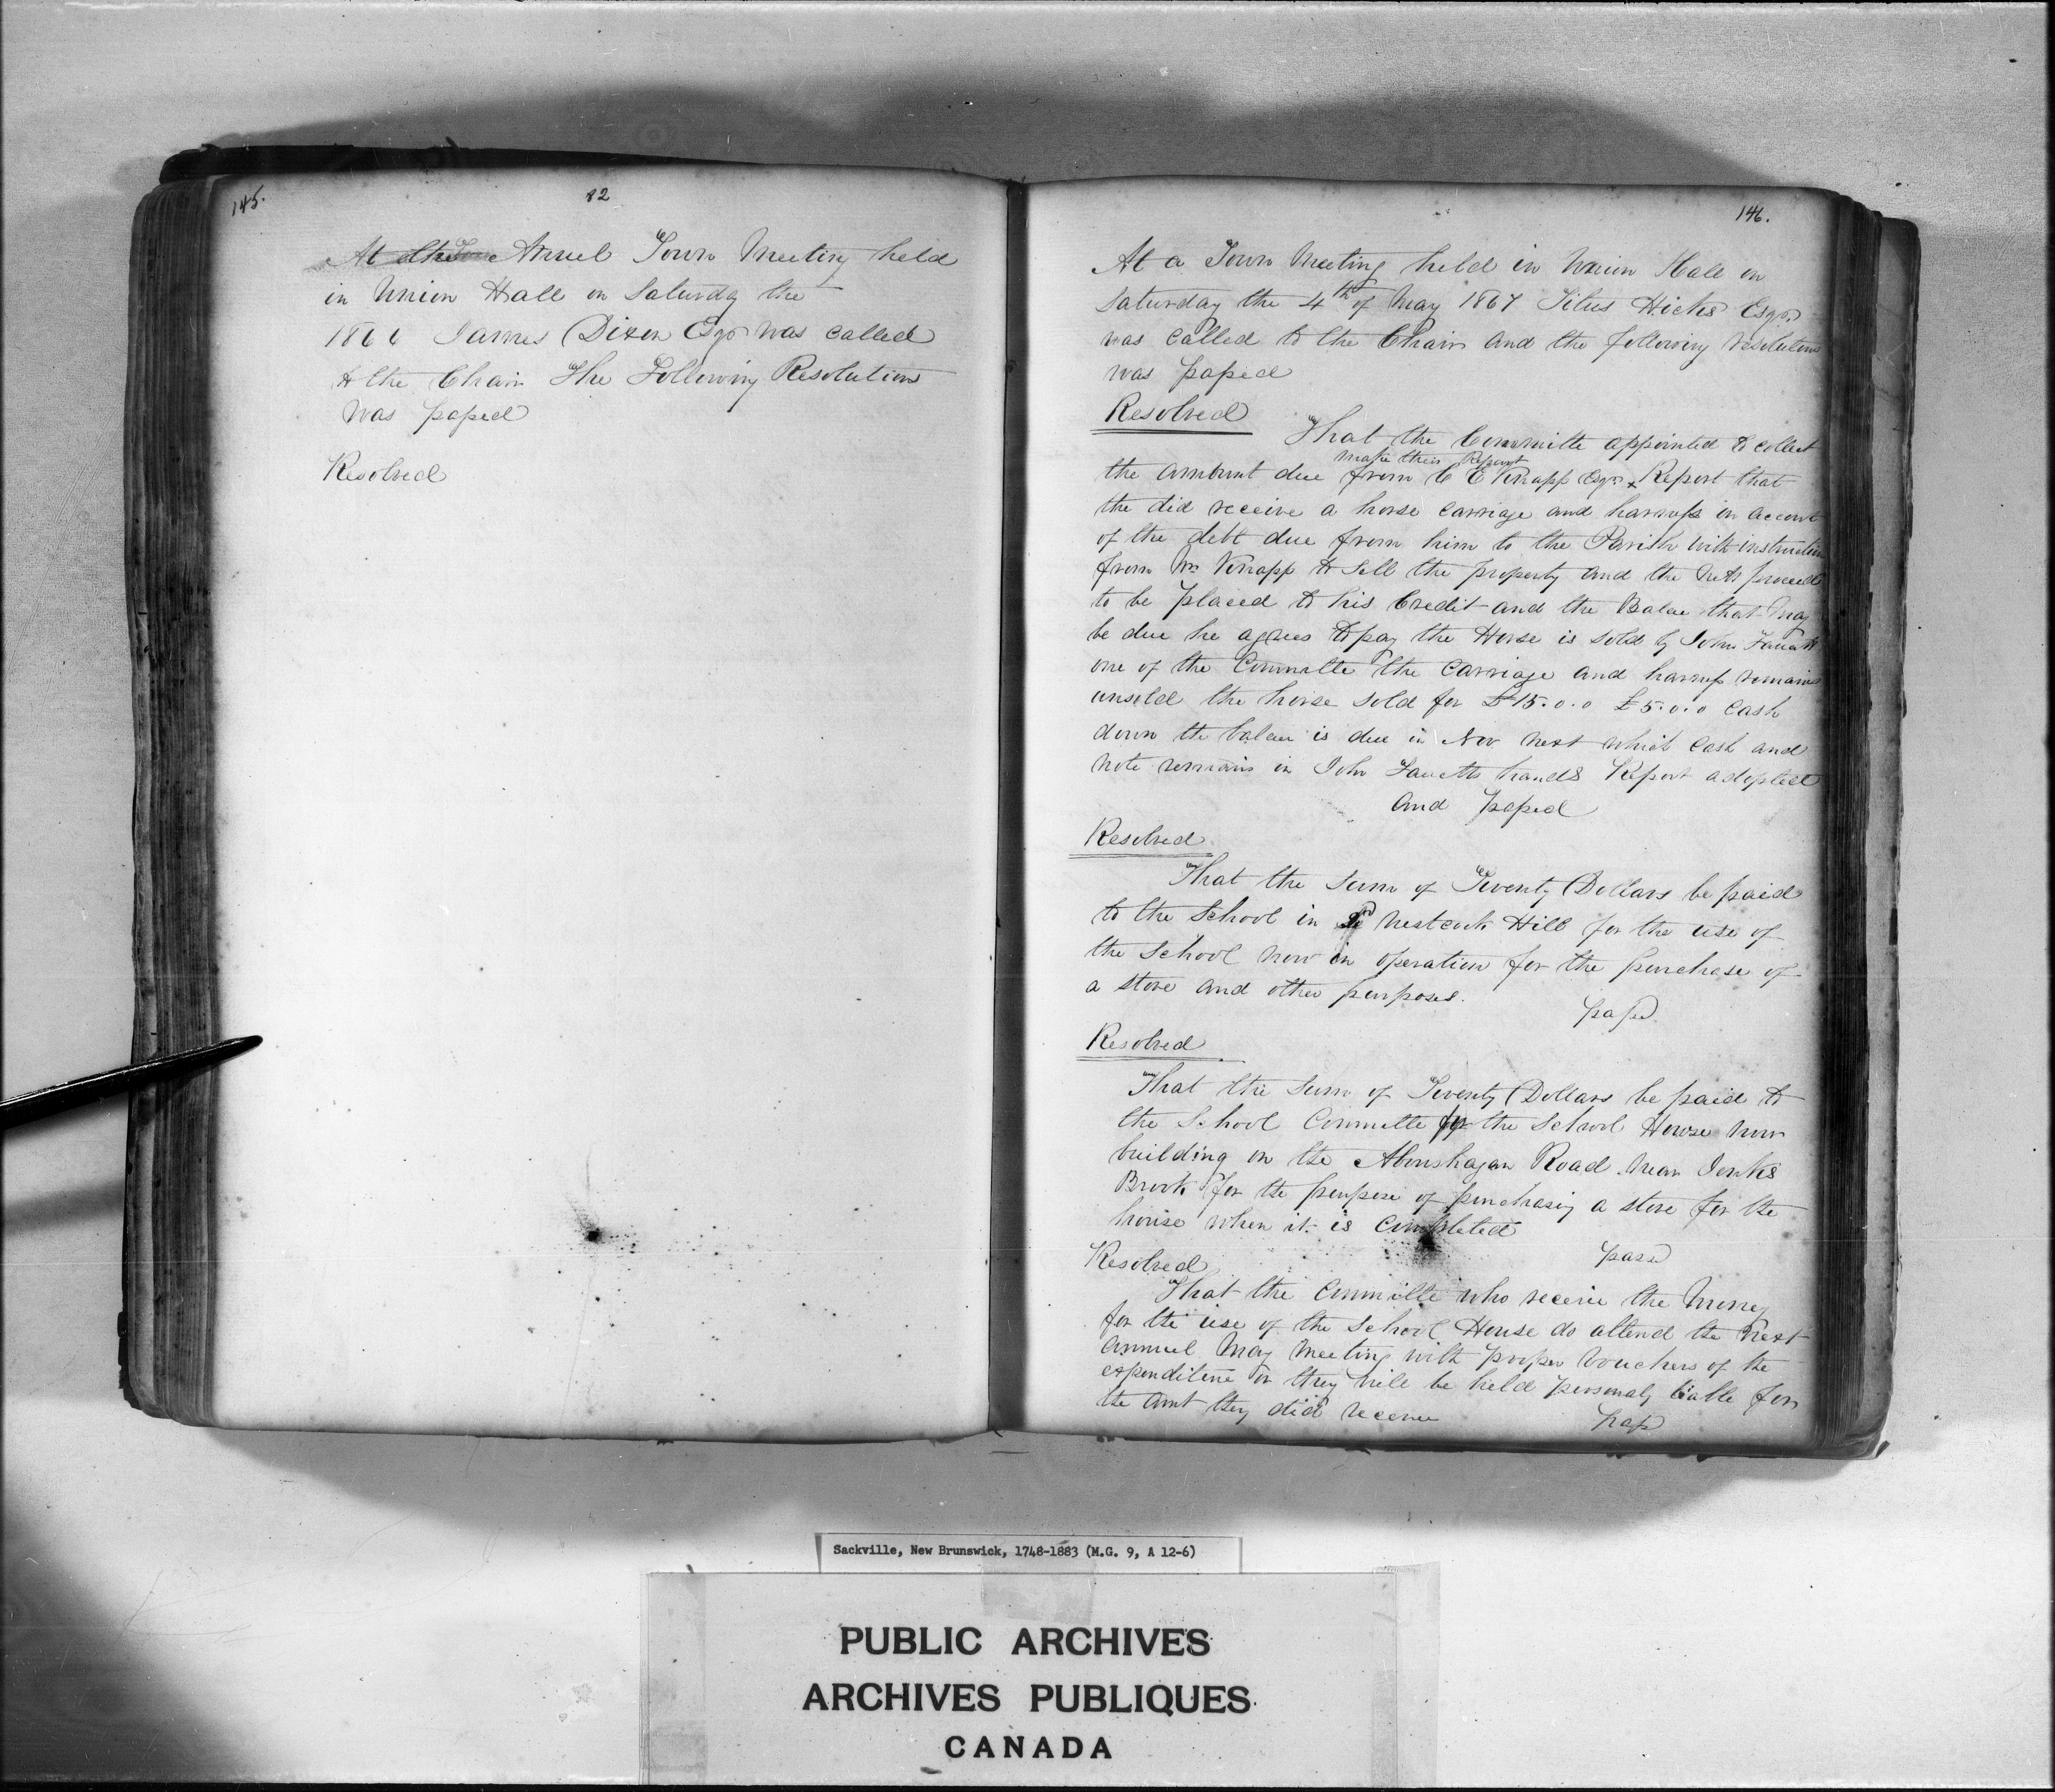 145.
82
At the Annuel Town Meeting held
in Union Hall on Saturdy the
1866 James Dixon Esqr was called
to the Chair The Following Resolutions
was passed
Resolved
146.
At a Town Meeting held in Union Hall on
Saturday the 4th of May 1867 Titus Hicks Esqr.
was called to the Chair and the following resolutions
was passed
Resolved
That the Committe appointed to collect
make their Report
the amount due from C E Knapp Esqr. x Report that
the did receive a horse carriage and harness in account
of the debt due from him to the Parish with instruction
from Mr Knapp to sell the property and the nett proceeds
to be placed to his Credit and the Balae that may
be due he agrees to pay the Horse is sold by John Fawcett
one of the Committe the carriage and harness remains
unsold the horse sold for £15.0.0 £5.0.0 cash
down the balae is due in Nov next which cash and
note remains in John Fawcetts hands Report adopted
and passed
Resolved
That the sum of Twenty Dollars be paid
to the School in Westcock Hill for the use of
the School now in operation for the purchase of
a stove and other purposes.
passd
Resolved
That the sum of Twenty Dollars be paid to
the School Committe for the School House now
building on the Aboushagan Road near Jenks
Brook for the purpose of purchasing a stove for the
house when it is completed
passd
Resolved
That the Committe who receive the money
for the use of the School House do attend the next
annuel May Meeting with proper vouchers of the
expenditure or they will be held personaly liable for
the amt they did receive
passd
Sackville, New Brunswick, 1748-1883 (M.G. 9, A 12-6)
PUBLIC ARCHIVES
ARCHIVES PUBLIQUES
CANADA